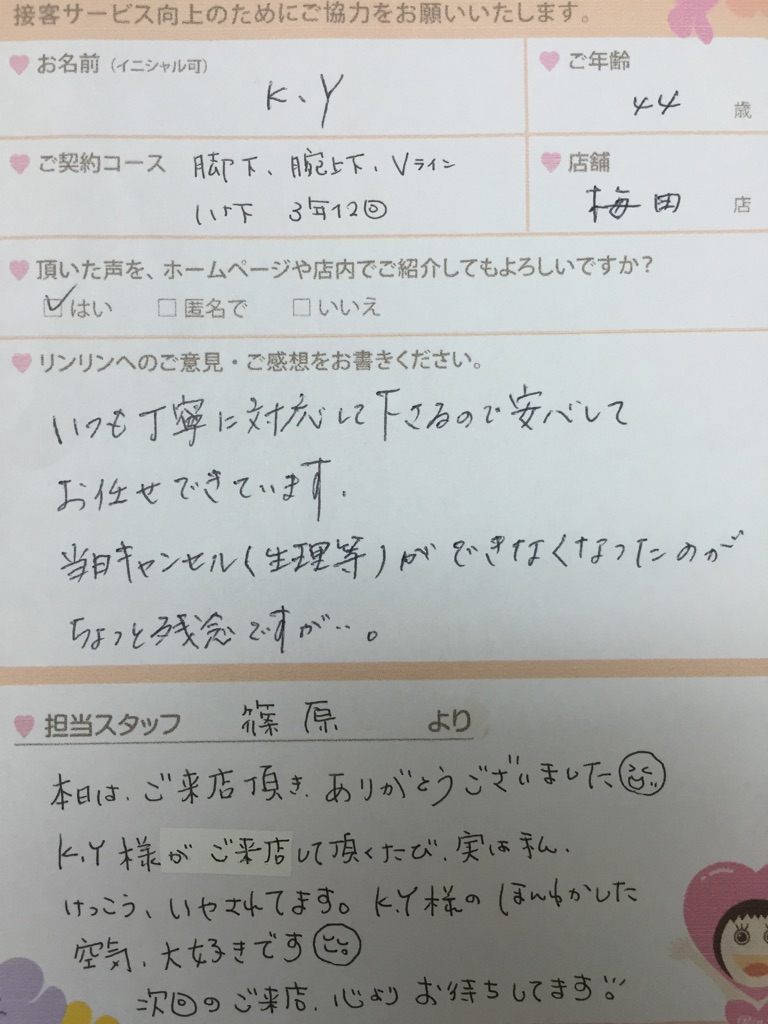 接客サービス向上のためにご協力をお願いいたします。
お名前（イニシャル可）
K.Y
ご年齢
44 歳
ご契約コース 脚下、腕上下、Vライン
いけ下 3年12回
店舗
梅田 店
頂いた声を、ホームページや店内でご紹介してもよろしいですか？
☑はい □匿名で □いいえ
リンリンへのご意見・ご感想をお書きください。
いつも丁寧に対応して下さるので安心して
お任せできています.
当日キャンセル(生理等)ができなくなったのが
ちょっと残念ですが…。
担当スタッフ 篠原 より
本日は、ご来店頂き、ありがとうございました
K.Y様がご来店して頂くたび、実は私、
けっこう、いやされてます。K.Y様のほんわかした
空気、大好きです
次回のご来店、心よりお待ちしてます